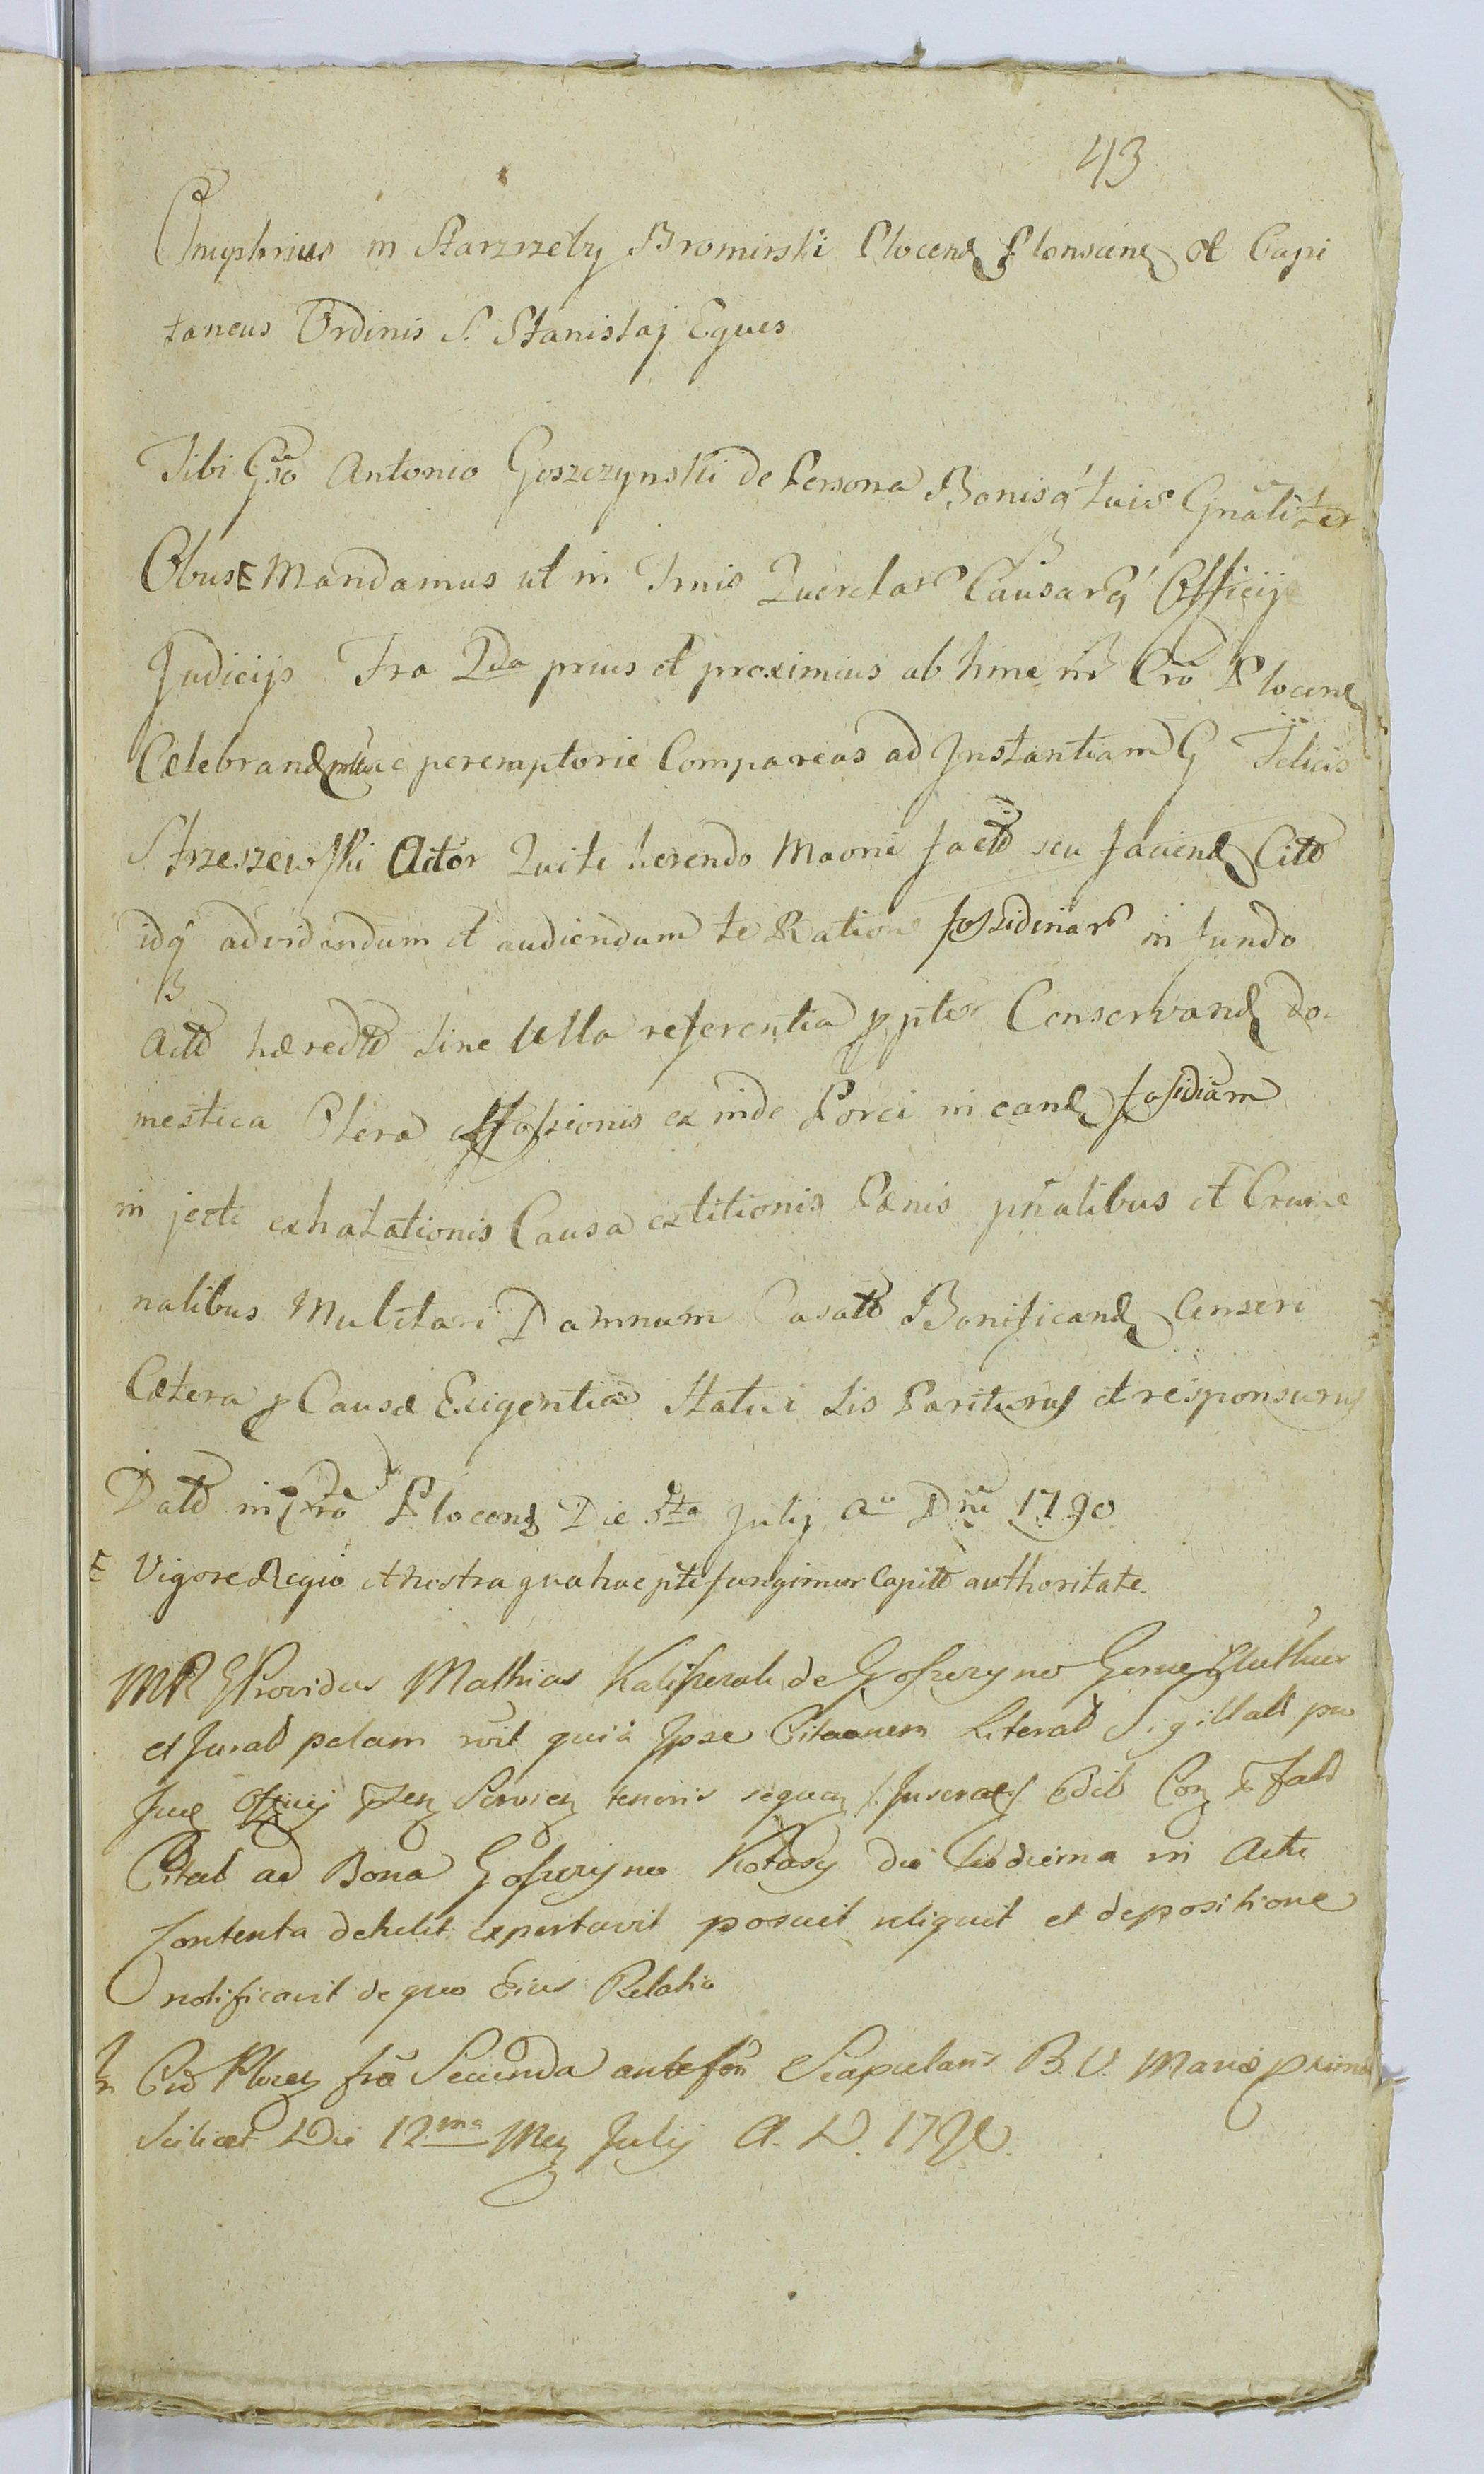 43
Onuphrius in Starzrzeby Bromirski Plocens Plonscens et Capi
taneus Ordinis S. Stanislaj Eques
Tibi Gso Antonio Goszczynski de Persona Bonisq' tuis Gnaliter
Obus E Mandamus ut in Trnis Querelar Causarq' Officij
Judicijs Fra 2da prius et proximius ab hinc in Cro Plocens
Celebrand peremptorie Compareas ad Instantiam G Felicis
Strzeszewski Actor Qui te herendo Maoni factd seu faciend Citt
idq ad vidandum et audiendum te Ratione fossidinar in fundo
Actd hæredtd sine ulla referentia p ptes Conservand do
mestica Olera effossionis ex inde Porci in eand fossidiam
in jecti exhalationis Causa extitionis Pænis pnalibus et Crimi
nalibus Mulctari Damnum Casatd Bonificand Censeri
Cætera p Causæ Exigentia Statui Sis Pariturus et responsurus
Datd in Cro Plocens Die 5ta Julij Ao Dni 1790
E Vigore Regio et nostra qua hac pte fungimur Capitd authoritate.
MR Providus Mathias de Goszczyno
et Jurat palam quia Ipse Citaonem Literat Sigillatt
Officij tenoris sequen /: Inserat :/
Citat ad Bona Goszczyno Kotasy die hodierna in Actu
Contenta detulit exportavit posuit reliquit et depositione
notificavit de quo Eius Relatio
In Cro Plocen fra Secunda ante festu Scapularis B. V. Mariæ proxima
Scilicet Die 12ma Men Julij A. D. 1790.